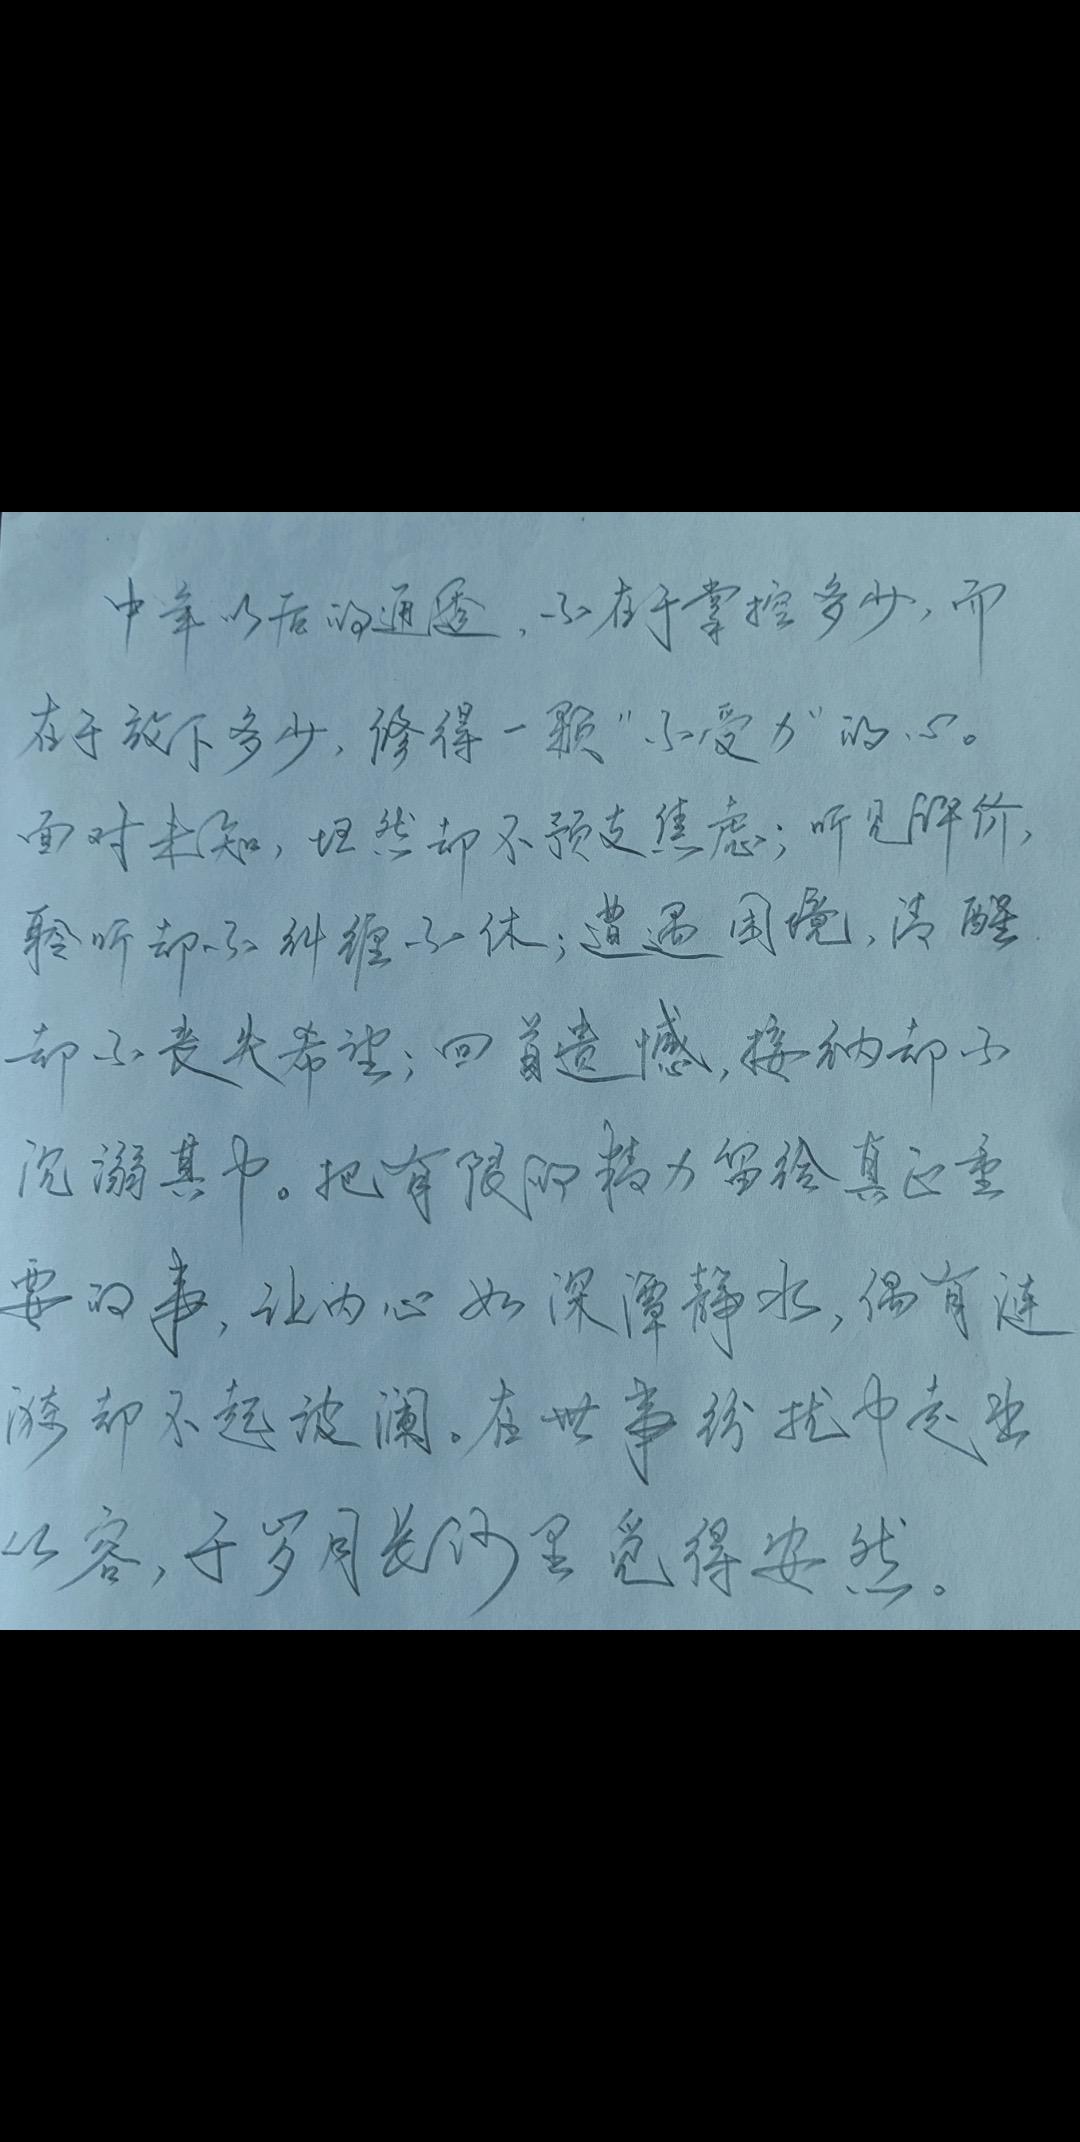 中年以后的通透，不在于掌控多少，而
在于放下多少，修得一颗“不受力”的心。
面对未知，坦然却不预支焦虑；听见评价，
聆听却不纠缠不休；遭遇困境，清醒
却不丧失希望；回首遗憾，接纳却不
沉溺其中。把有限的精力留给真正重
要的事，让内心如深潭静水，偶有涟
漪却不起波澜。在世事纷扰中走出
从容，于岁月长河里觅得安然。